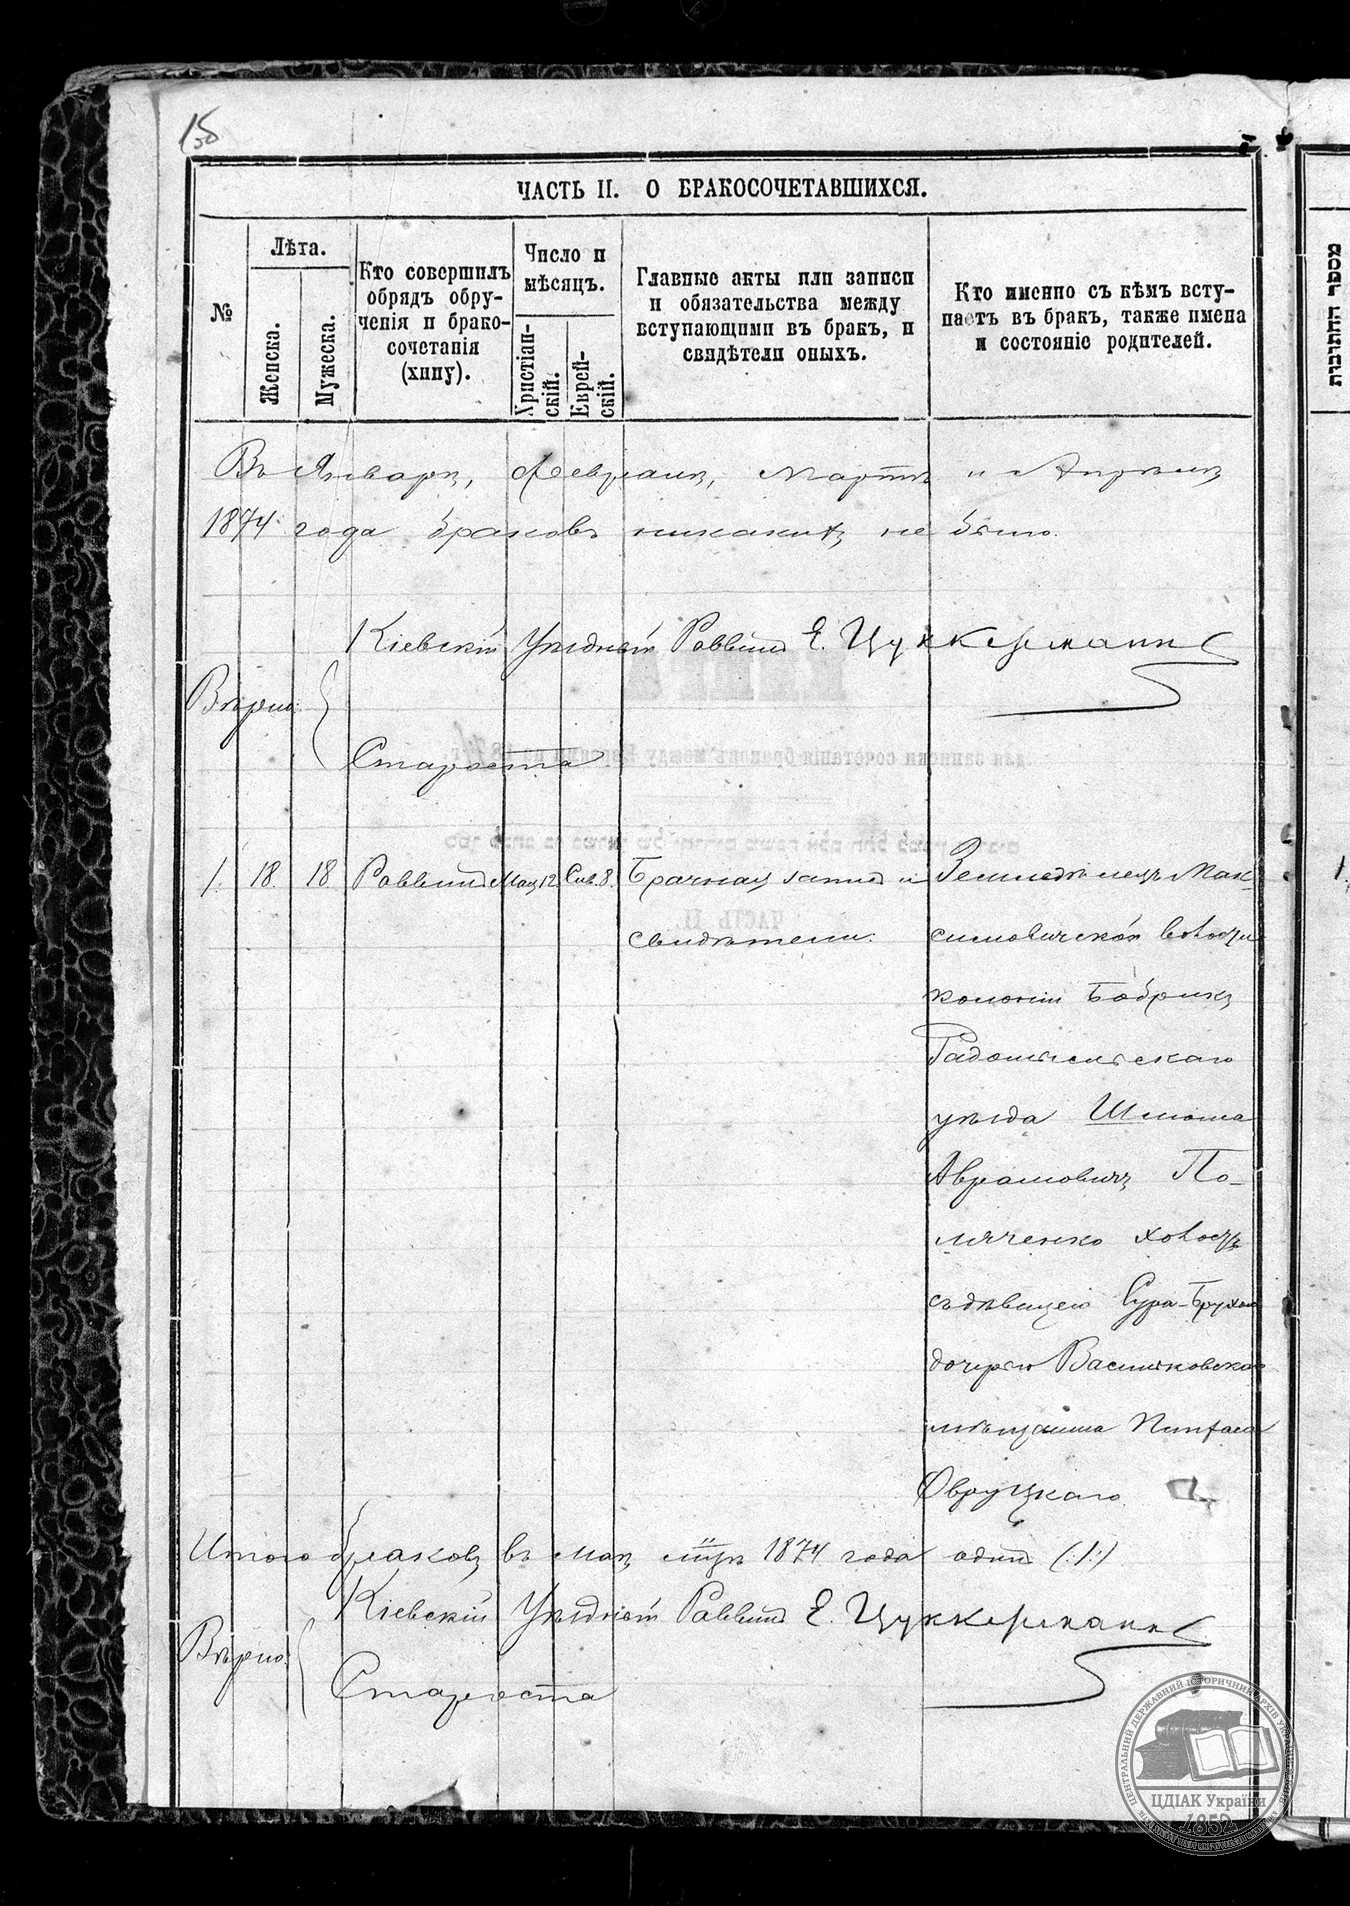 15
ЧАСТЬ II. О БРАКОСОЧЕТАВШИХСЯ.
№
Лѣта.
Женска.
Мужеска.
Кто совершилъ
обрядъ обру-
ченія и брако-
сочетанія
(хипу).
Число и
мѣсяцъ.
Христіан-
скій.
Еврей-
скій.
Главные акты или записи
и обязательства между
вступающими въ бракъ, и
свидѣтели оныхъ.
Кто именно съ кѣмъ всту-
паетъ въ бракъ, также имена
и состояніе родителей.
Въ Январѣ, Февралѣ, Мартѣ и Апрѣлѣ
1874 года браковъ никакихъ не было.
Кіевскій Уѣздный Раввинъ Е. Цуккерманъ
Вѣрно:
Староста
1. 18. 18 Раввинъ Мая 12 Сив. 8. Брачная запись и
свидѣтели.
Земледѣлецъ Мак-
симовической волости
колоніи Бобрикъ
Радомысльскаго
уѣзда Шлиома
Аврамовичъ По-
ляченко холостъ
съ дѣвицею Сура-Брухою
дочерью Васильковскаго
мѣщанина Пинхаса
Овруцкаго
Итого браковъ въ маѣ м-цѣ 1874 года одинъ (:1:)
Кіевскій Уѣздный Раввинъ Е. Цуккерманъ
Вѣрно:
Староста
מספר החתונות
1.
ЦЕНТРАЛЬНИЙ ДЕРЖАВНИЙ ІСТОРИЧНИЙ АРХІВ УКРАЇНИ
ЦДІАК України
1852